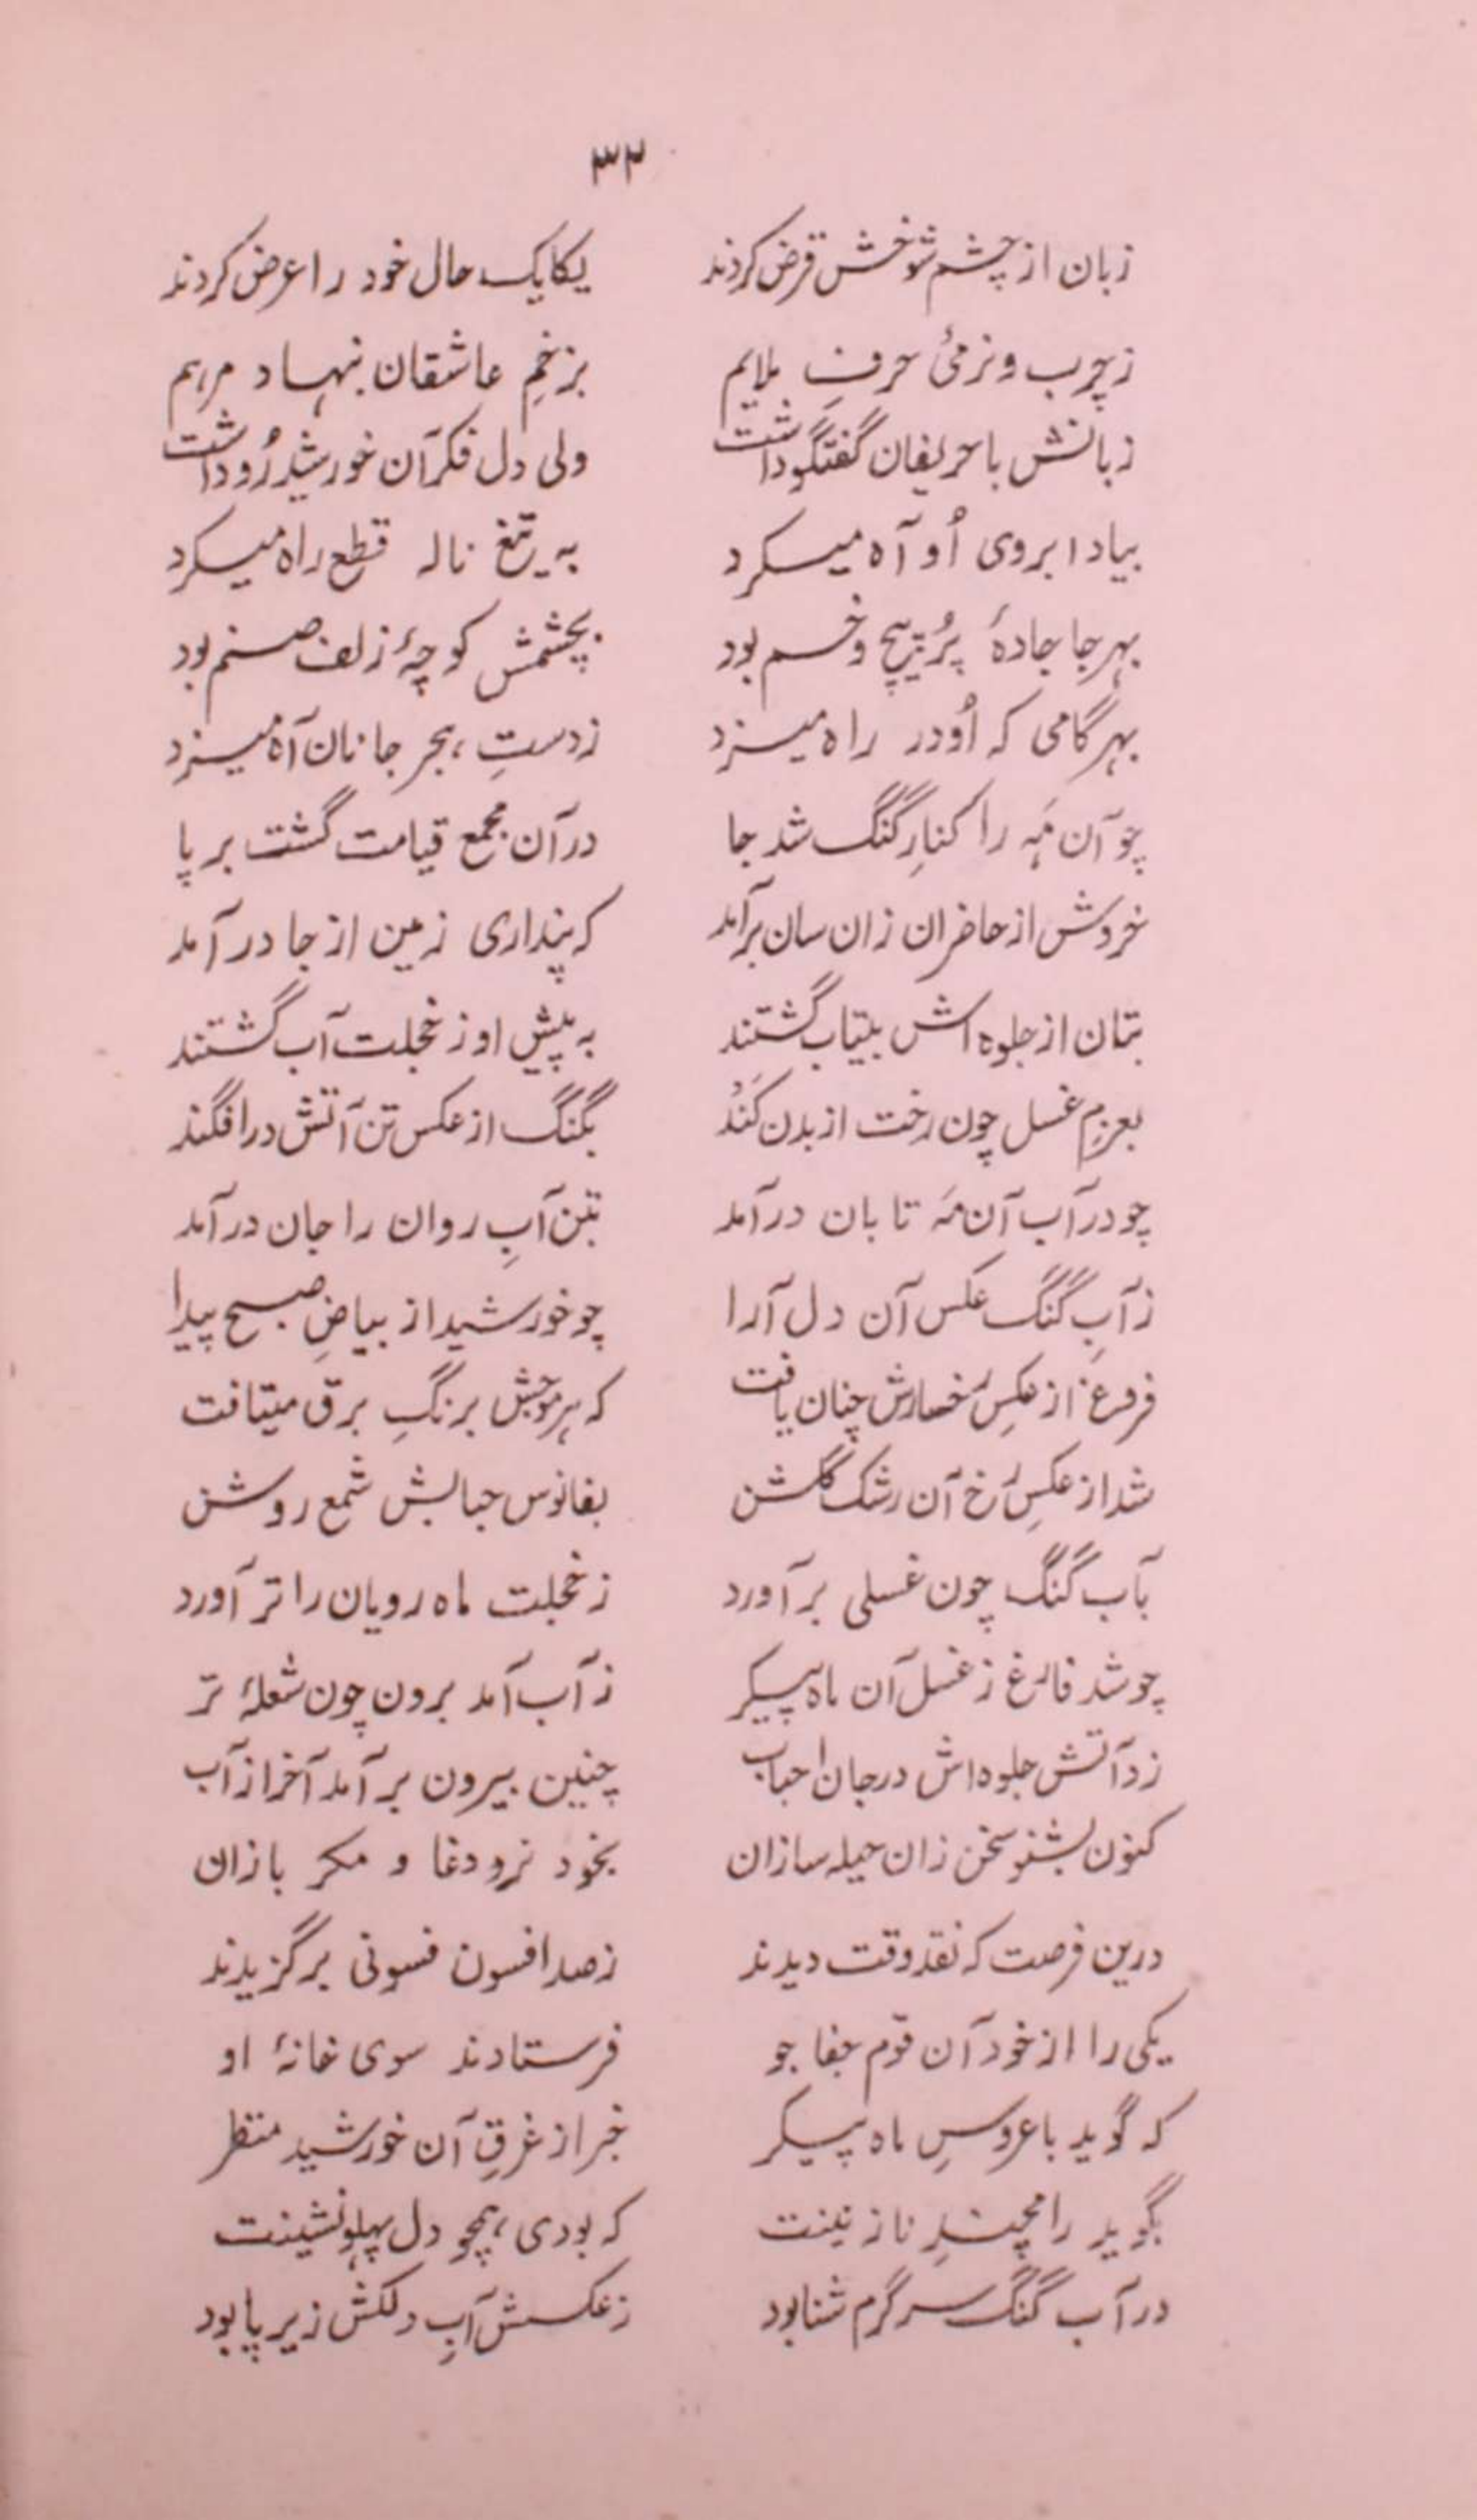 ۳۲
زبان از چشم شوخش قرض کردند یکایک حال خود را عرض کردند
ز چرب و نرمیٔ حرفِ ملایم بزخمِ عاشقان بنهاد مرهم
زبانش با حریفان گفتگو داشت ولی دل فکر آن خورشید رُو داشت
بیاد ابروی اُو آه میکرد به تیغ ناله قطع راه میکرد
بهر جا جادهٔ پُر پیچ و خم بود بچشمش کوچهٔ زلف صنم بود
بهر گامی که اُو در راه میزد ز دستِ هجر جانان آه میزد
چو آن مَه را کنارِ گنگ شد جا در آن مجمع قیامت گشت برپا
خروش از حاضران زان سان برآمد که پنداری زمین از جا درآمد
بتان از جلوه اش بیتاب گشتند به پیش او ز خجلت آب گشتند
بعزمِ غسل چون رخت از بدن کَند بگنگ از عکس تن آتش درافگند
چو در آب آن مَه تابان درآمد بتن آبِ روان را جان درآمد
ز آبِ گنگ عکس آن دل آرا چو خورشید از بیاضِ صبح پیدا
فروغ از عکسِ رُخسارش چنان یافت که هر موجش برنگِ برق میتافت
شد از عکسِ رُخ آن رشک گلشن بفانوس حبابش شمع روشن
بآب گنگ چون غسلی برآورد ز خجلت ماه رویان را تر آورد
چو شد فارغ ز غسل آن ماه پیکر ز آب آمد برون چون شعلهٔ تر
زد آتش جلوه اش در جان احباب چنین بیرون برآمد آخر از آب
کنون بشنو سخن زان حیله سازان بخود نرد دغا و مکر بازان
درین فرصت که نقد وقت دیدند ز صد افسون فسونی برگزیدند
یکی را از خود آن قوم جفا جو فرستادند سوی خانهٔ او
که گوید با عروسِ ماه پیکر خبر از غرقِ آن خورشید منظر
بگوید رامچندِ نازنینت که بودی همچو دل پهلو نشینت
در آب گنگ سرگرم شنا بود ز عکسش آبِ دلکش زیر پا بود